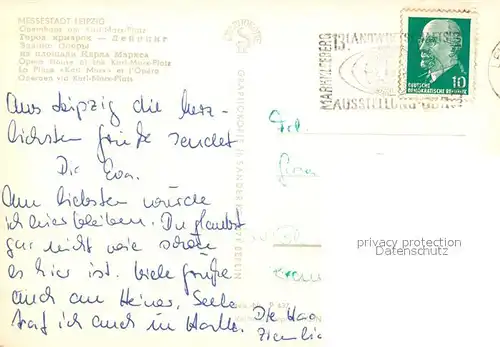 MESSESTADT LEIPZIG
Opernhaus am Karl-Marx-Platz
Город ярмарок — Лейпциг
Здание Оперы
на площади Карла Маркса
Opera House at the Karl-Marx-Platz
La Place «Karl Marx» et l'Opéra
Operaen vid Karl-Marx-Platz
Aus Leipzig die herz-
lichsten Grüße sendet
Dir Eva.
Am liebsten würde
ich hier bleiben. Du glaubst
gar nicht wie schön
es hier ist. Viele Grüße
auch an Heiner.
traf ich auch in Halle.
Die Haa
ziemlic
MARKKLEEBERG
13. LANDWIRTSCHAFTS
AUSSTELLUNG DDR
DEUTSCHE
DEMOKRATISCHE REPUBLIK
10
privacy protection
Datenschutz